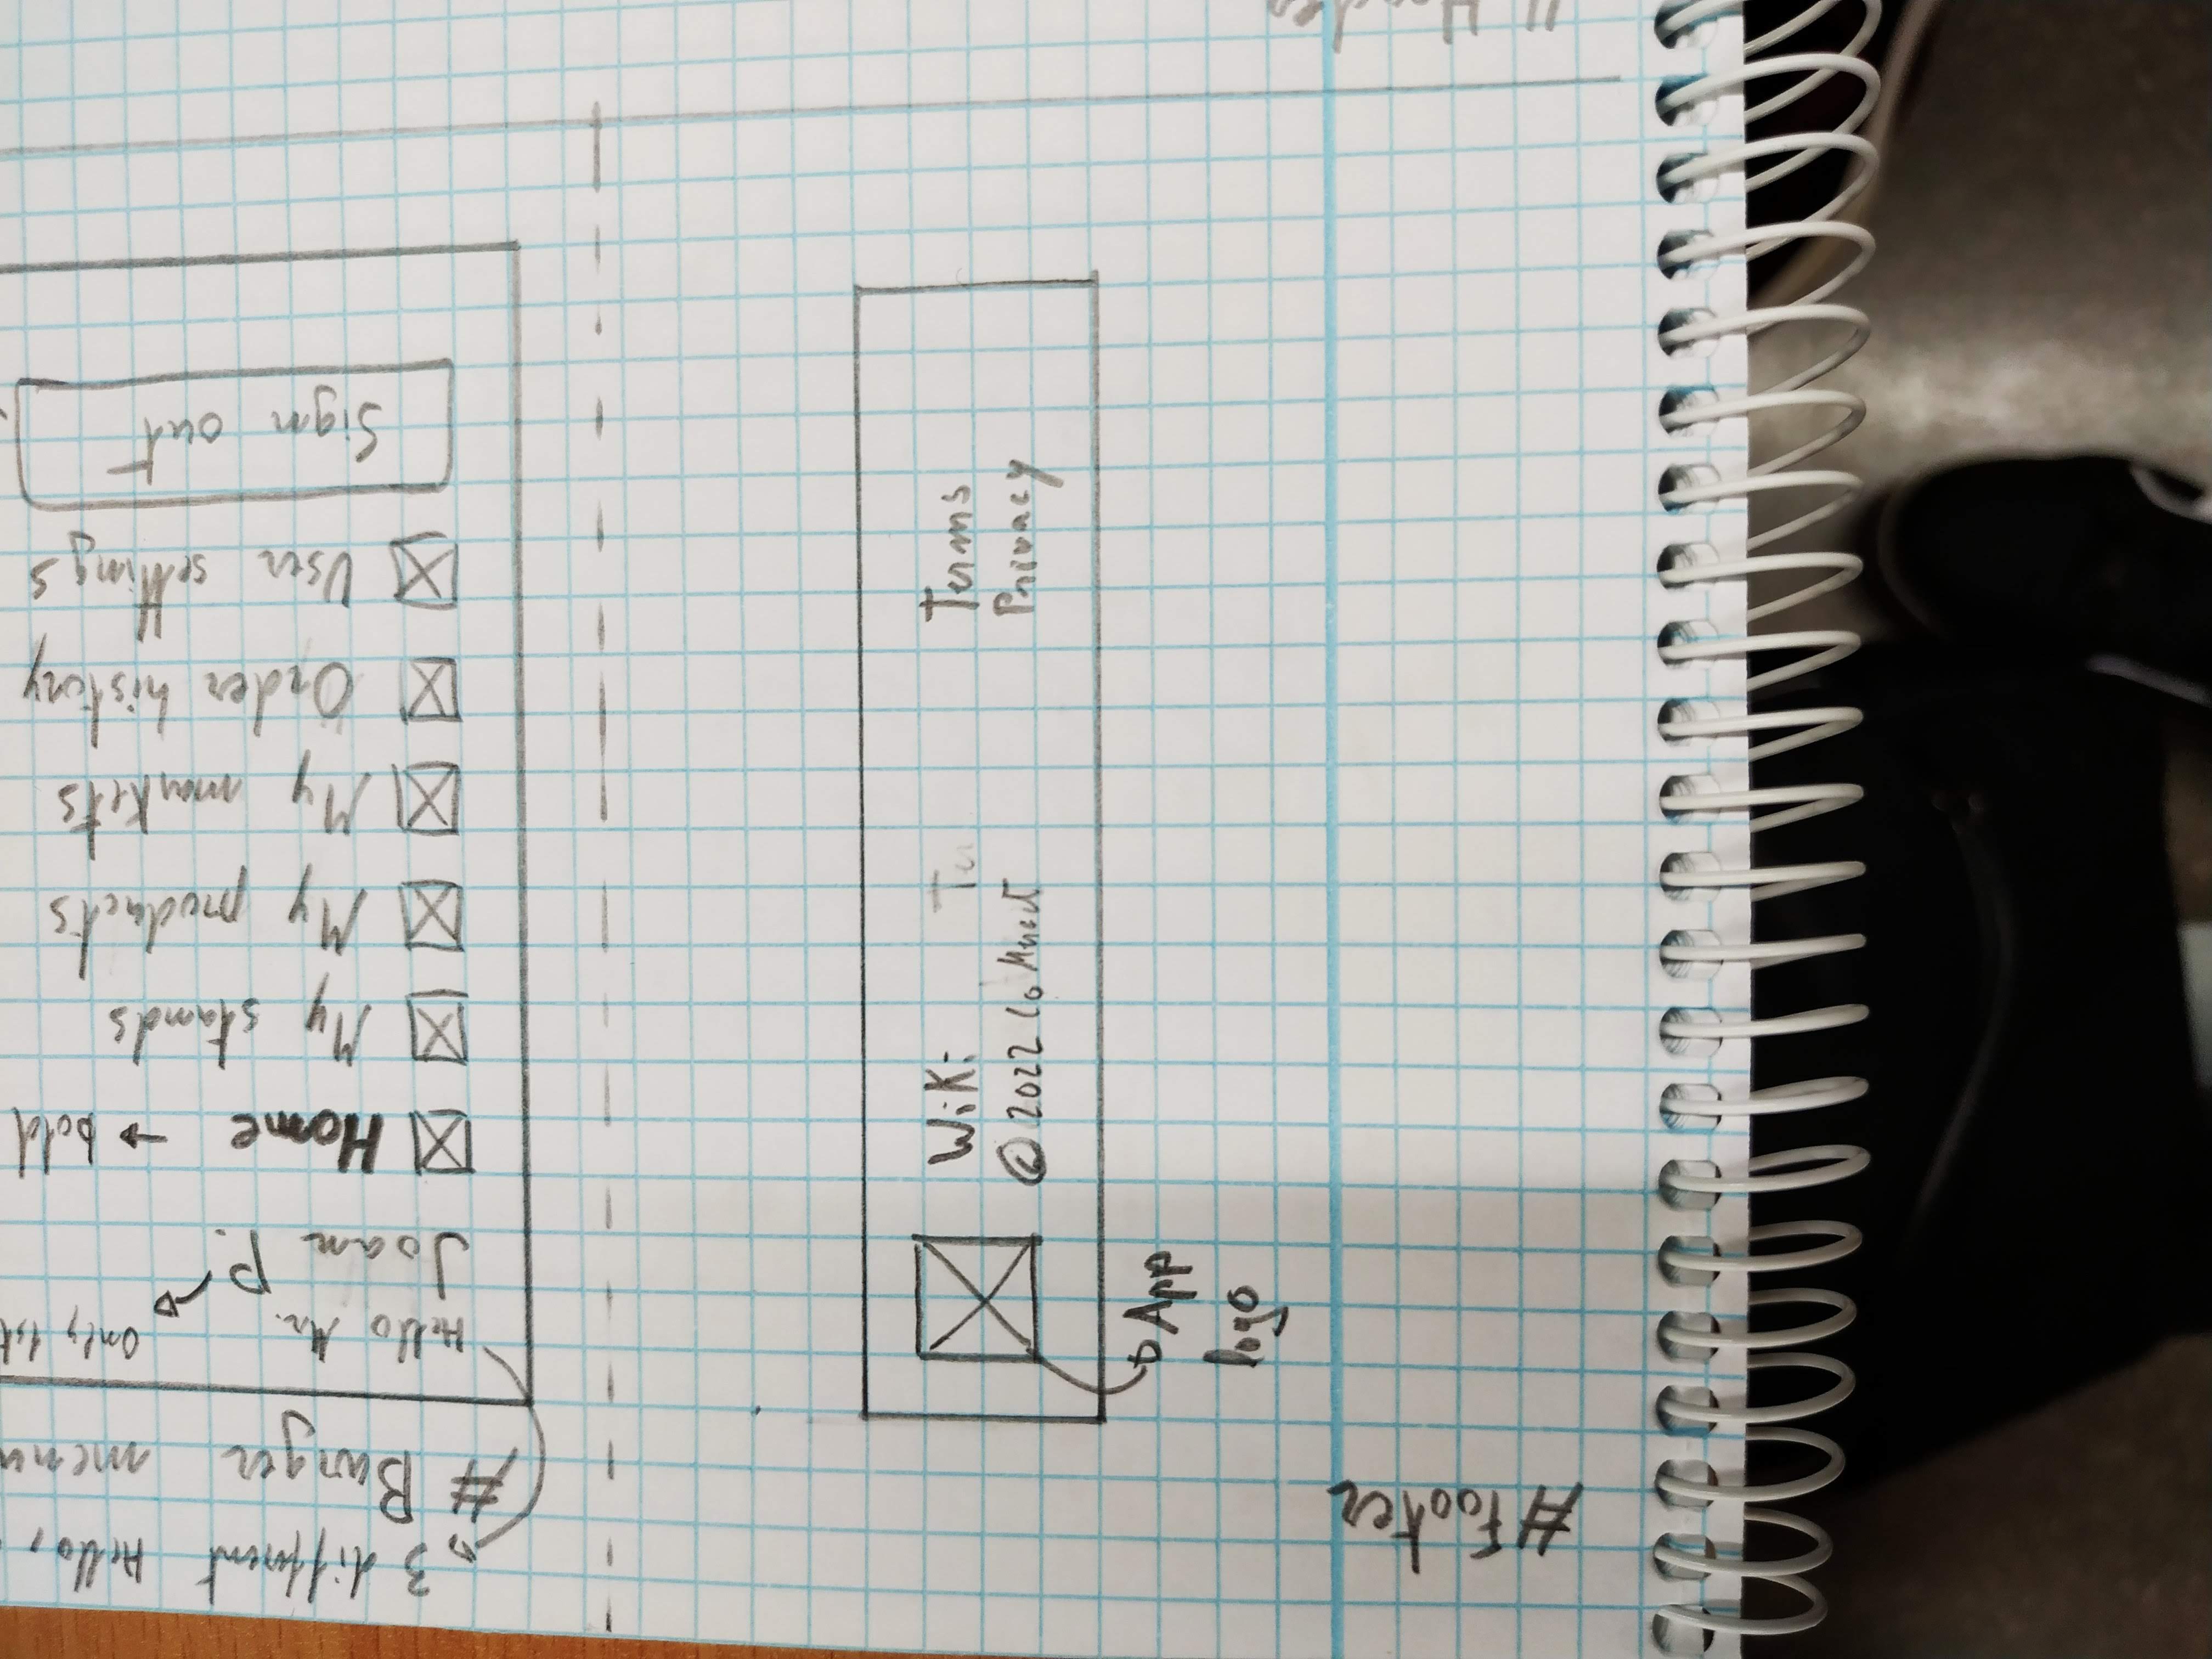 #Footer
App
logo
Wiki
© 2022
Terms
Privacy
3 different Hello,
# Burger menu
Hello Mr.
Only 1st
Joan P.
Home → bold
My stands
My products
My markets
Order history
User settings
Sign out
# Header